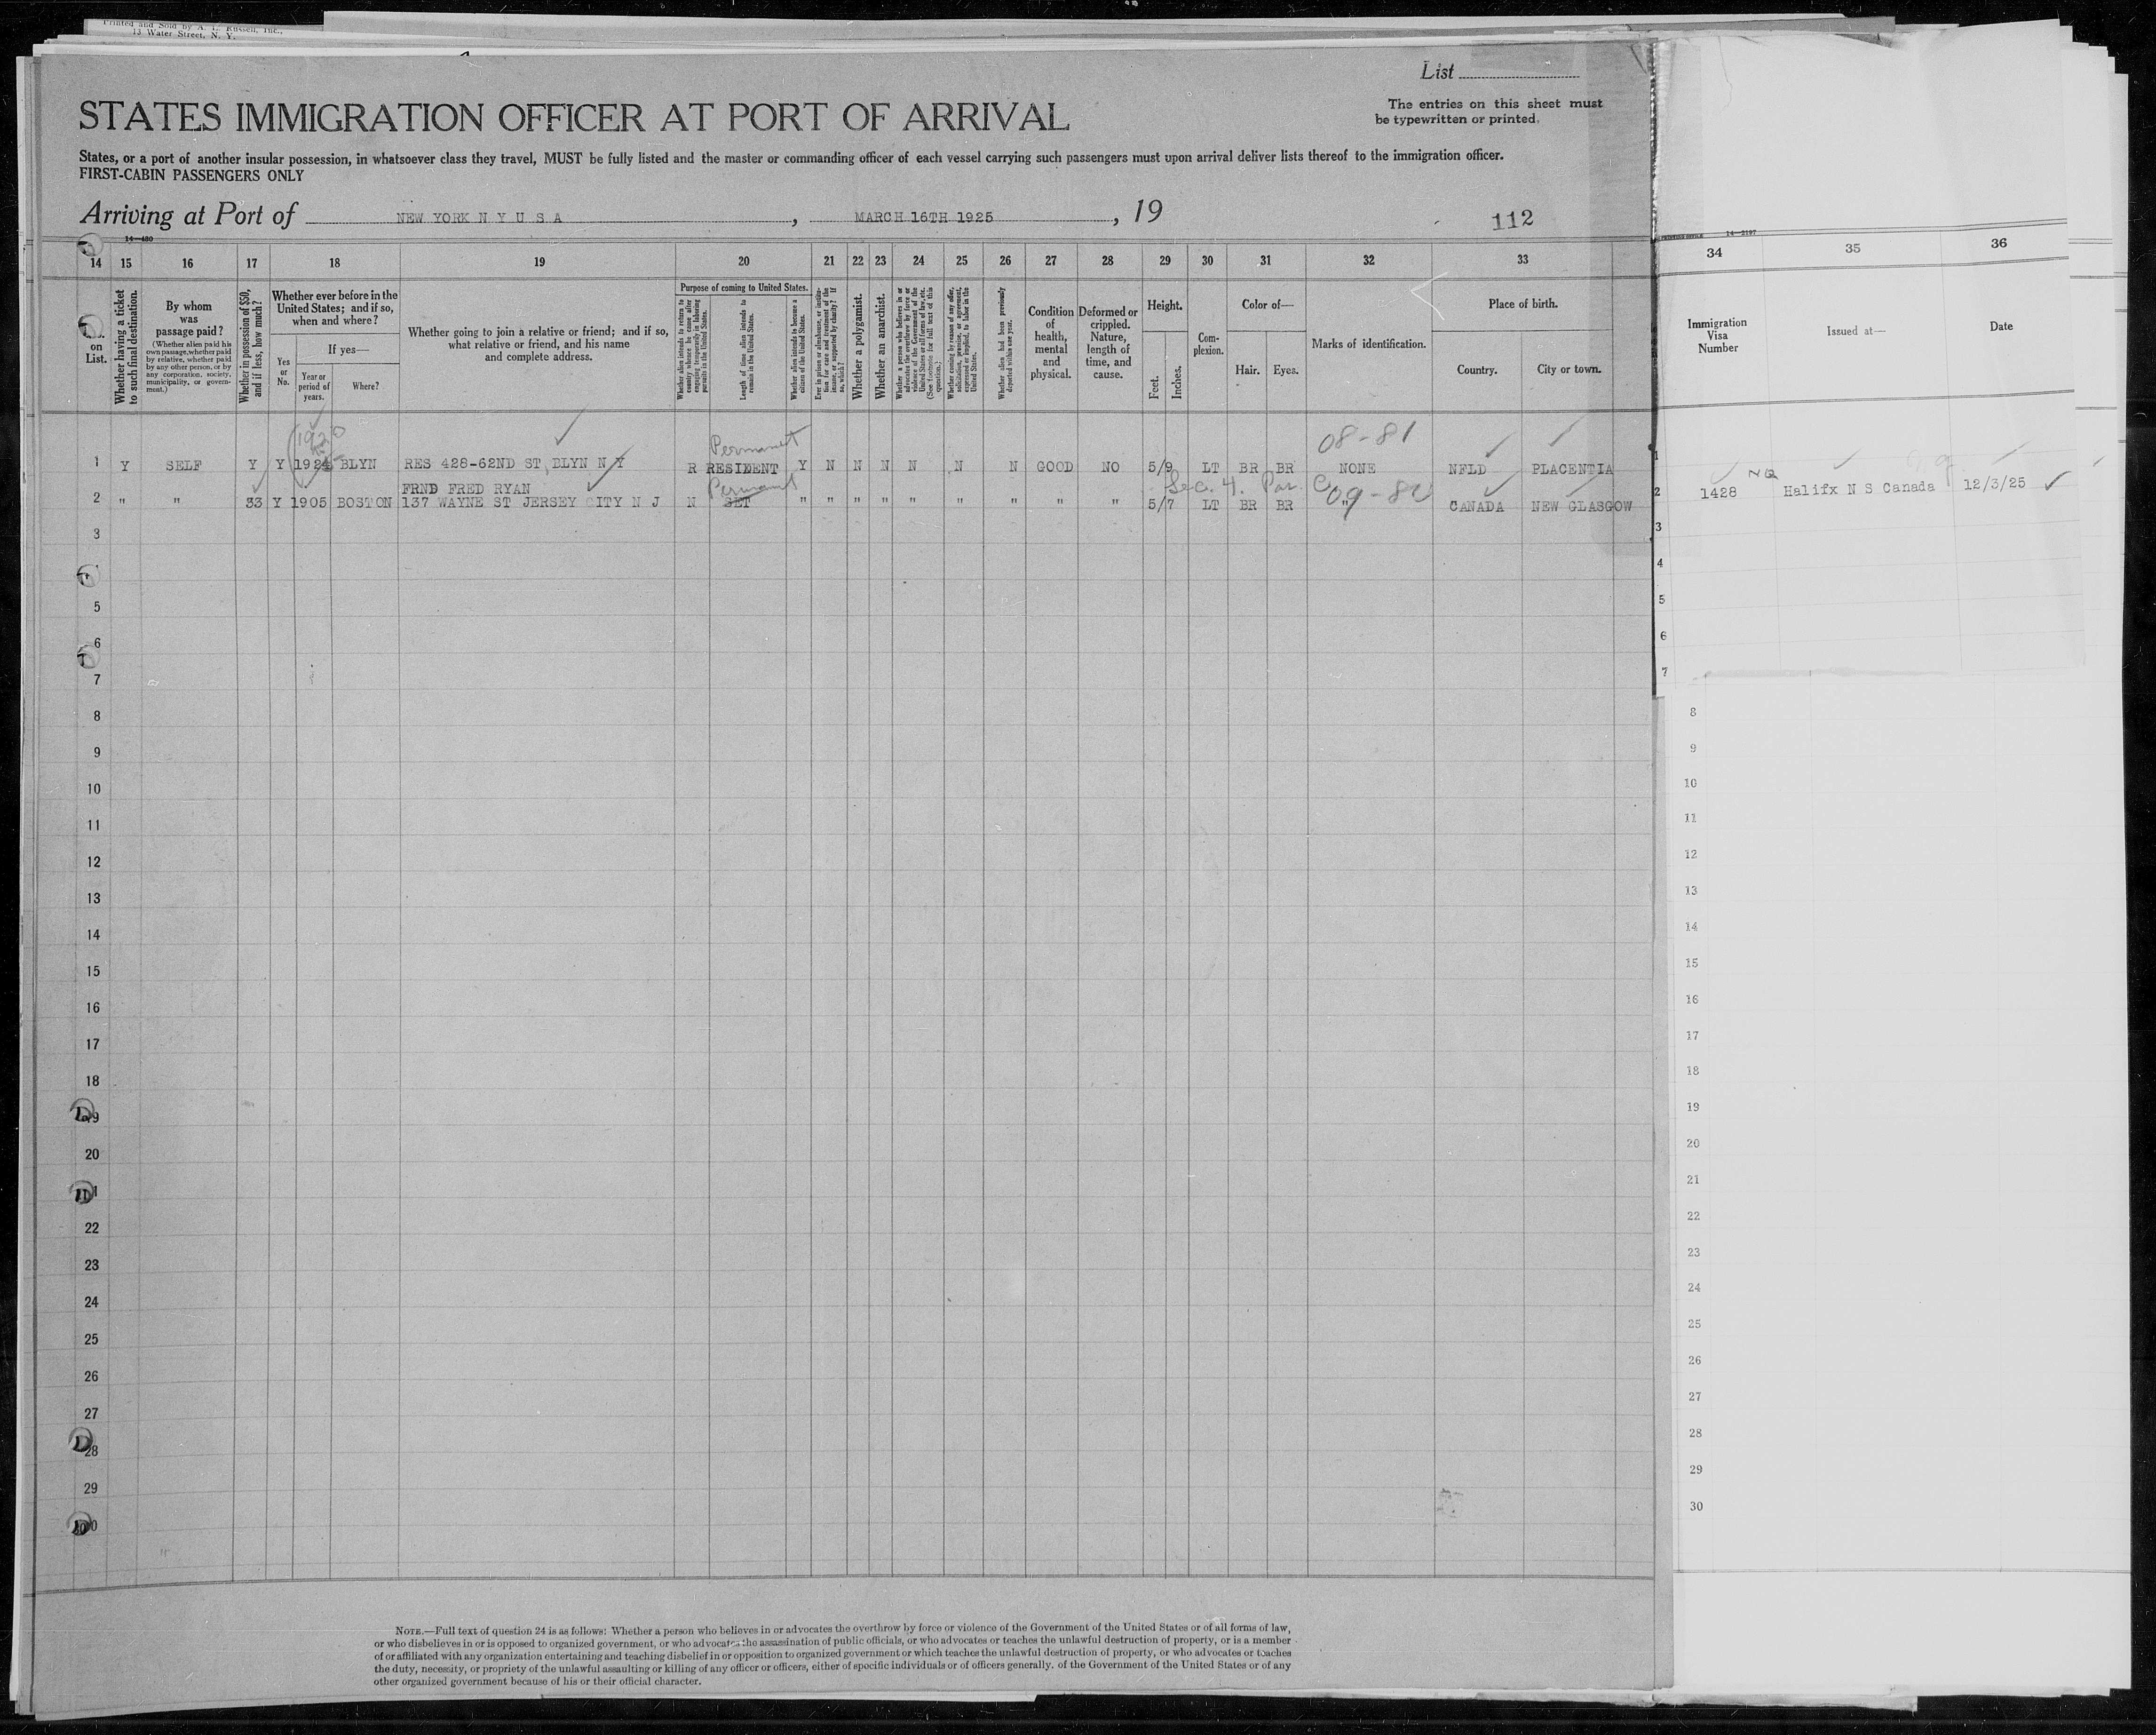 Printed and Sold by A. L. Russell, Inc.,
13 Water Street, N. Y.
List
The entries on this sheet must
be typewritten or printed.
STATES IMMIGRATION OFFICER AT PORT OF ARRIVAL
States, or a port of another insular possession, in whatsoever class they travel, MUST be fully listed and the master or commanding officer of each vessel carrying such passengers must upon arrival deliver lists thereof to the immigration officer.
FIRST-CABIN PASSENGERS ONLY
Arriving at Port of NEW YORK N Y U S A, MARCH 16TH 1925, 19
112
14—480
14—2197
14 15 16 17 18 19 20 21 22 23 24 25 26 27 28 29 30 31 32 33 34 35 36
on
List.
Whether having a ticket
to such final destination.
By whom
was
passage paid?
(Whether alien paid his
own passage, whether paid
by relative, whether paid
by any other person, or by
any corporation, society,
municipality, or govern-
ment.)
Whether in possession of $50,
and if less, how much?
Whether ever before in the
United States; and if so,
when and where?
Yes
or
No.
If yes—
Year or
period of
years.
Where?
Whether going to join a relative or friend; and if so,
what relative or friend, and his name
and complete address.
Purpose of coming to United States.
Whether alien intends to return to
country whence he came after
engaging temporarily in laboring
pursuits in the United States.
Length of time alien intends to
remain in the United States.
Whether alien intends to become a
citizen of the United States.
Ever in prison or almshouse, or institu-
tion for care and treatment of the
insane, or supported by charity? If
so, which?
Whether a polygamist.
Whether an anarchist.
Whether a person who believes in or
advocates the overthrow by force or
violence of the Government of the
United States or all forms of law, etc.
(See footnote for full text of this
question.)
Whether coming by reason of any offer,
solicitation, promise, or agreement,
expressed or implied, to labor in the
United States.
Whether alien had been previously
deported within one year.
Condition
of
health,
mental
and
physical.
Deformed or
crippled.
Nature,
length of
time, and
cause.
Height.
Feet.
Inches.
Com-
plexion.
Color of—
Hair.
Eyes.
Marks of identification.
Place of birth.
Country.
City or town.
Immigration
Visa
Number
Issued at—
Date
1920
Permanent
08-81
1 Y SELF Y Y 1924 BLYN RES 428-62ND ST BLYN N Y R RESIDENT Y N N N N N N GOOD NO 5/9 LT BR BR NONE NFLD PLACENTIA
Permanent
Sec. 4. Par. C
09-82
FRND FRED RYAN
2 " " 33 Y 1905 BOSTON 137 WAYNE ST JERSEY CITY N J N SET " " " " " " " " " 5/7 LT BR BR " CANADA NEW GLASGOW
1428 NQ Halifx N S Canada 12/3/25
3
5
6
7
8
9
10
11
12
13
14
15
16
17
18
19
20
21
22
23
24
25
26
27
28
29
30
1
2
3
4
5
6
7
8
9
10
11
12
13
14
15
16
17
18
19
20
21
22
23
24
25
26
27
28
29
30
NOTE.—Full text of question 24 is as follows: Whether a person who believes in or advocates the overthrow by force or violence of the Government of the United States or of all forms of law,
or who disbelieves in or is opposed to organized government, or who advocates the assassination of public officials, or who advocates or teaches the unlawful destruction of property, or is a member
of or affiliated with any organization entertaining and teaching disbelief in or opposition to organized government or which teaches the unlawful destruction of property, or who advocates or teaches
the duty, necessity, or propriety of the unlawful assaulting or killing of any officer or officers, either of specific individuals or of officers generally, of the Government of the United States or of any
other organized government because of his or their official character.